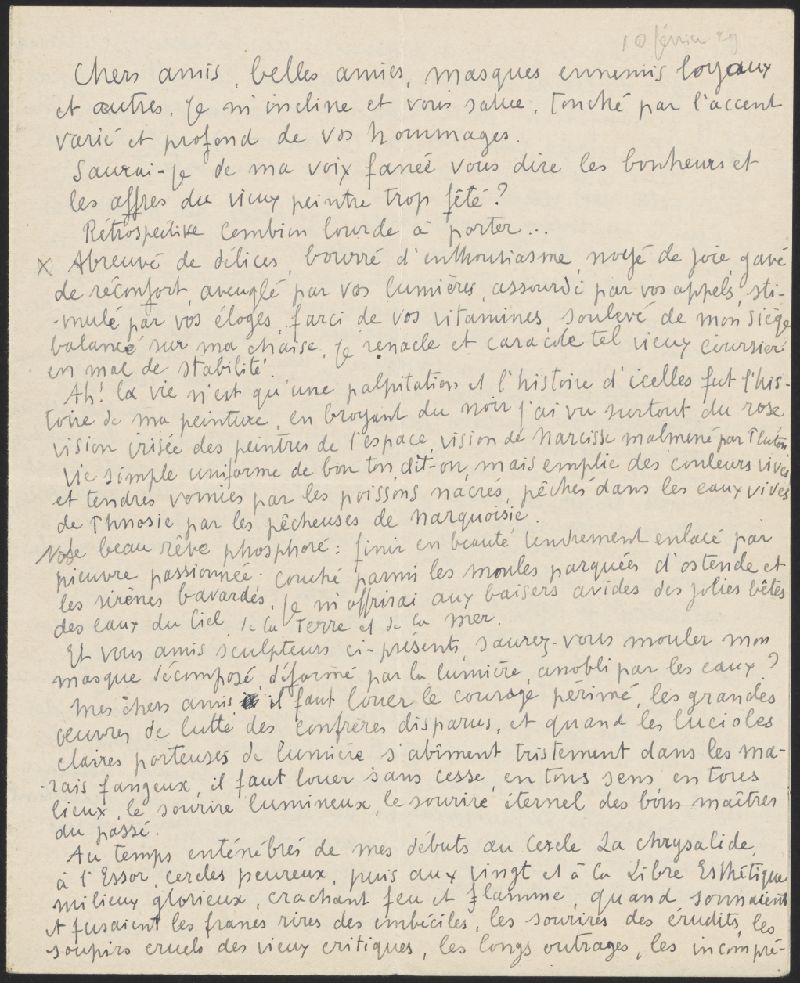 10 février 29
Chers amis, belles amies, masques ennemis loyaux
et autres. Je m'incline et vous salue. Touché par l'accent
varié et profond de vos hommages.
Saurai-je de ma voix fanée vous dire les bonheurs et
les affres du vieux peintre trop fêté ?
Rétrospective combien lourde à porter...
X Abreuvé de délices, bourré d'enthousiasme, noyé de joie, gavé
de réconfort, aveuglé par vos lumières, assourdi par vos appels, sti-
-mulé par vos éloges, farci de vos vitamines, soulevé de mon siège
balancé sur ma chaise. Je renacle et caracole tel vieux coursier
en mal de stabilité.
Ah! la vie n'est qu'une palpitation et l'histoire d'icelles fut l'his-
toire de ma peinture, en broyant du noir j'ai vu surtout du rose
vision irisée des peintres de l'espace, vision de Narcisse malmené par Pluton
Vie simple uniforme de bon ton, dit-on, mais emplie des couleurs vives
et tendres vomies par les poissons nacrés, pêchés dans les eaux vives
de Phnosie par les pêcheuses de Narquoisie.
beau rêve phosphoré : finir en beauté tendrement enlacé par
pieuvre passionnée. Couché parmi les moules parquées d'ostende et
les sirènes bavardes. Je m'offrirai aux baisers avides des jolies bêtes
des eaux du Ciel de la Terre et de la mer.
Et vous amis sculpteurs ci-présents, saurez-vous mouler mon
masque décomposé, déformé par la lumière, anobli par les eaux ?
Mes chers amis il faut louer le courage périmé, les grandes
œuvres de lutte des confrères disparus, et quand les lucioles
claires porteuses de lumière s'abîment tristement dans les ma-
-rais fangeux, il faut louer sans cesse, en tous sens, en tous
lieux, le sourire lumineux, le sourire éternel des bons maîtres
du passé.
Au temps enténébré de mes débuts au Cercle La Chrysalide,
à l'Essor, cercles peureux, puis aux vingt et à la Libre Esthétique
milieux glorieux, crachant feu et flamme, quand sonnaient
et fusaient les francs rires des imbéciles, les sourires des érudits, les
soupirs cruels des vieux critiques, les longs outrages, les incompré-